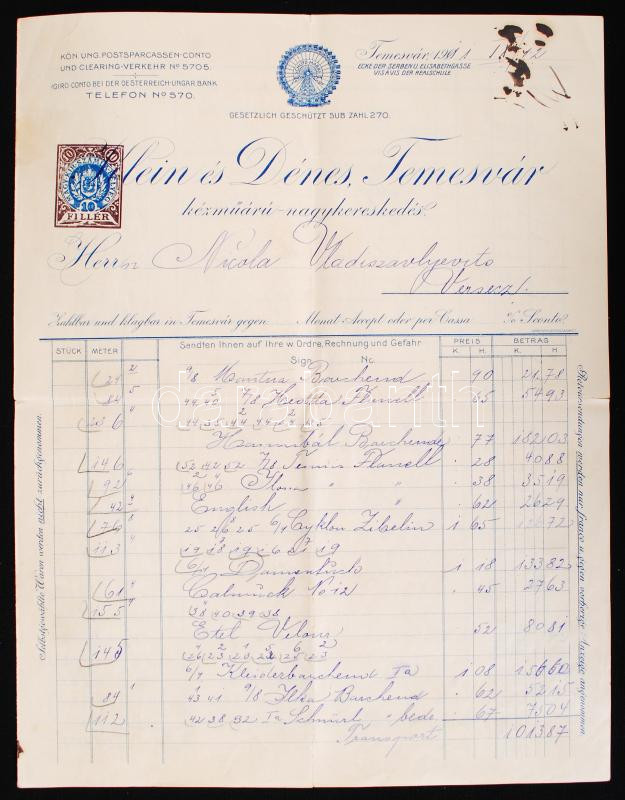 KÖN. UNG. POSTSPARCASSEN-CONTO
UND CLEARING-VERKEHR № 5705.
GIRO CONTO BEI DER OESTERREICH-UNGAR. BANK
TELEFON № 570.
Temesvár, 1901
ECKE DER SERBEN U. ELISABETHGASSE
VIS À VIS DER REALSCHULE
GESETZLICH GESCHÜTZT SUB ZAHL 270.
10 10
10
FILLÉR
Klein és Dénes, Temesvár
kézműárú-nagykereskedés.
Herrn Nicola Vladiszavlyevits
Versecz
Zahlbar und klagbar in Temesvár gegen Monat Accept oder per Cassa % Sconto
STÜCK METER Sendten Ihnen auf Ihre w. Ordre, Rechnung und Gefahr PREIS BETRAG
Sign. Nc. K. H. K. H
9/8 Barchend 90 21.78
84 7/8 Flanell 65 54 93
Hannibal Barchend 77 182 03
146 52 42 52 7/8 Tennis Flanell 28 40 88
92 46 46 Ilona " " 38 35 19
42 English " 62 26 29
76 6/4 Cyklon Zibelin 1 65
113 6/4 Damentuch 1 18 133 82
61 Calmuck No 12 45 27 63
155 38 40 39 38
Etel Velour 52 80 81
145
6/4 Kleiderbarchend Ia 1 08 156 60
84 43 41 9/8 Ilka Barchend 62 52 15
112 42 38 32 Ia Schnürl " bede 67 75 04
Transport 1013 87
Selbstgewählte Waren werden nicht zurückgenommen.
Retoursendungen werden nur franco u. gegen vorherige Anzeige angenommen
darabanth